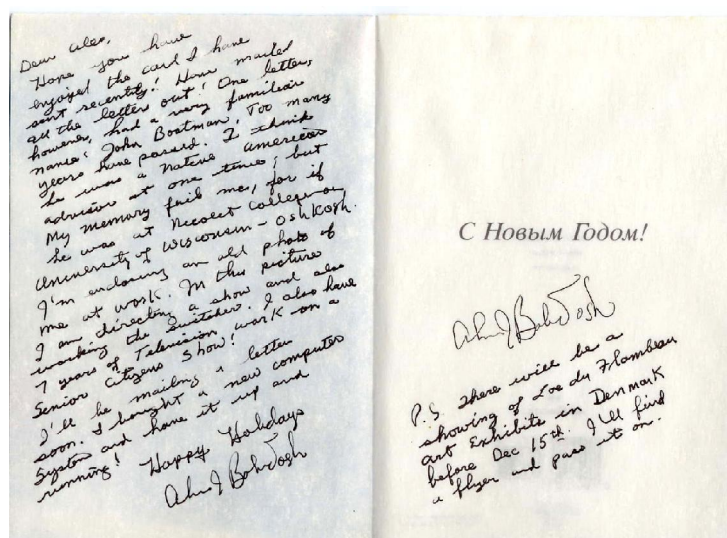 Dear Alex,
Hope you have
enjoyed the card I have
sent recently! Have mailed
all the letters out! One letter,
however, had a very familiar
name: John Boatman. Too many
years have passed. I think
he was a Native American
advisor at one time; but
My memory fail me, for if
he was at Nicolet College or
University of Wisconsin - Oshkosh.
I'm enclosing an old photo of
me at work. In this picture
I am directing a show and also
working the switcher. I also have
7 years of Television work on a
Senior Citizens Show!
I'll be mailing a letter
soon. I bought a new computer
System and have it up and
running!
Happy Holidays
С Новым Годом!
P.S. There will be a
showing of Lac du Flambeau
art Exhibits in Denmark
before Dec 15th. I'll find
a flyer and pass it on.